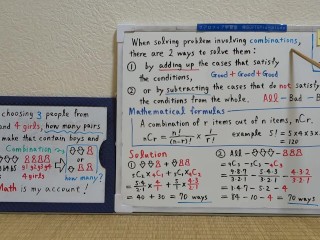 choosing 3 people from
and 4 girls, how many pairs
that contain boys and
Combination
or
how many?
Math is my account!
When solving problem involving combinations,
there are 2 ways to solve them:
① by adding up the cases that satisfy
the conditions,
Good + Good + Good
② or by subtracting the cases that do not satisfy
the conditions from the whole.
All - Bad - B
Mathematical formulas
A combination of r items out of n items, nCr.
nCr = n!/(n-r)! × 1/r!
example 5! = 5×4×3×
= 120
Solution
①
② All -
= 9C3 - 5C3 - 4C3
= 40 + 30 = 70 ways
= 3·4·7 - 5·2 - 4
= 84 - 10 - 4 = 70 ways